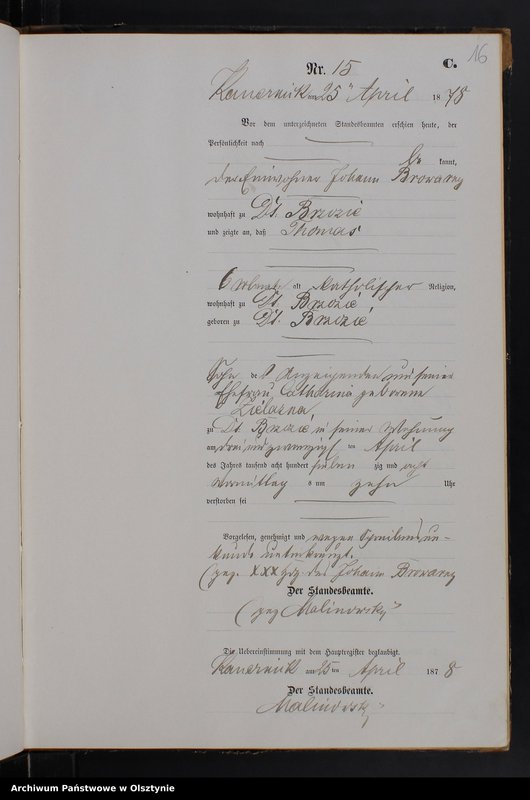 16
Nr. 15
C.
Kauernik am 25ten April 1878
Vor dem unterzeichneten Standesbeamten erschien heute, der
Persönlichkeit nach
be kannt,
der Einwohner Johann Browarny
wohnhaft zu Dt. Brzozie
und zeigte an, daß Thomas
6 alt Katholischer Religion,
wohnhaft zu Dt. Brzozie
geboren zu Dt. Brzozie
Sohn des Anzeigenden und seiner
Ehefrau Catharina geborene
Zielazna
zu Dt. Brzozie in seiner Wohnung
am drei und zwanzigsten April
des Jahres tausend acht hundert sieben zig und acht
Vormittag s um zehn Uhr
verstorben sei
Vorgelesen, genehmigt und wegen Schreibens un-
kunde unterkreuzt.
(gez. XXX Hdz des Johann Browarny
Der Standesbeamte.
(gez Malinowsky
Die Uebereinstimmung mit dem Hauptregister beglaubigt.
Kauernik am 25 ten April 1878
Der Standesbeamte.
Malinowsky
Archiwum Państwowe w Olsztynie